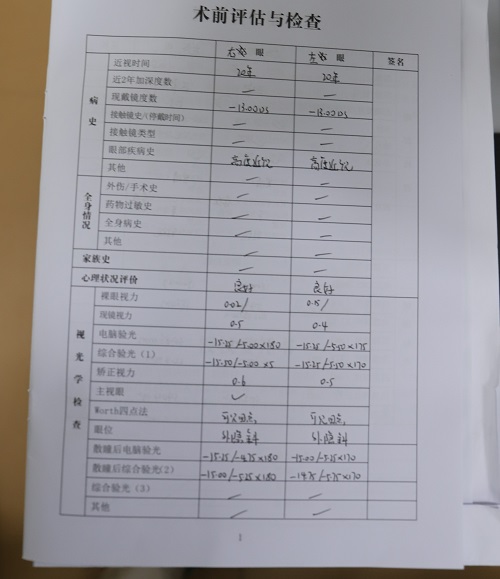 术前评估与检查
右 眼 左 眼 签名
病史
近视时间 20年 20年
近2年加深度数 — —
现戴镜度数 -13.00DS -13.00DS
接触镜史/(停戴时间) — —
接触镜类型 — —
眼部疾病史 高度近视 高度近视
其他 — —
全身情况
外伤/手术史 — —
药物过敏史 — —
全身病史 — —
其他 — —
家族史 — —
心理状况评价 良好 良好
视光学检查
裸眼视力 0.02/
现镜视力 0.5 0.4
电脑验光 -15.25/-5.00×180 -15.25/-5.50×175
综合验光(1) -15.50/-5.00×5 -15.25/-5.50×170
矫正视力 0.6 0.5
主视眼 ✓
Worth四点法
眼位 外隐斜 外隐斜
散瞳后电脑验光 -15.25/-4.75×180 -15.00/-5.25×170
散瞳后综合验光(2) -15.00/-5.25×180 -14.75/-5.75×170
综合验光(3) — —
其他 — —
1